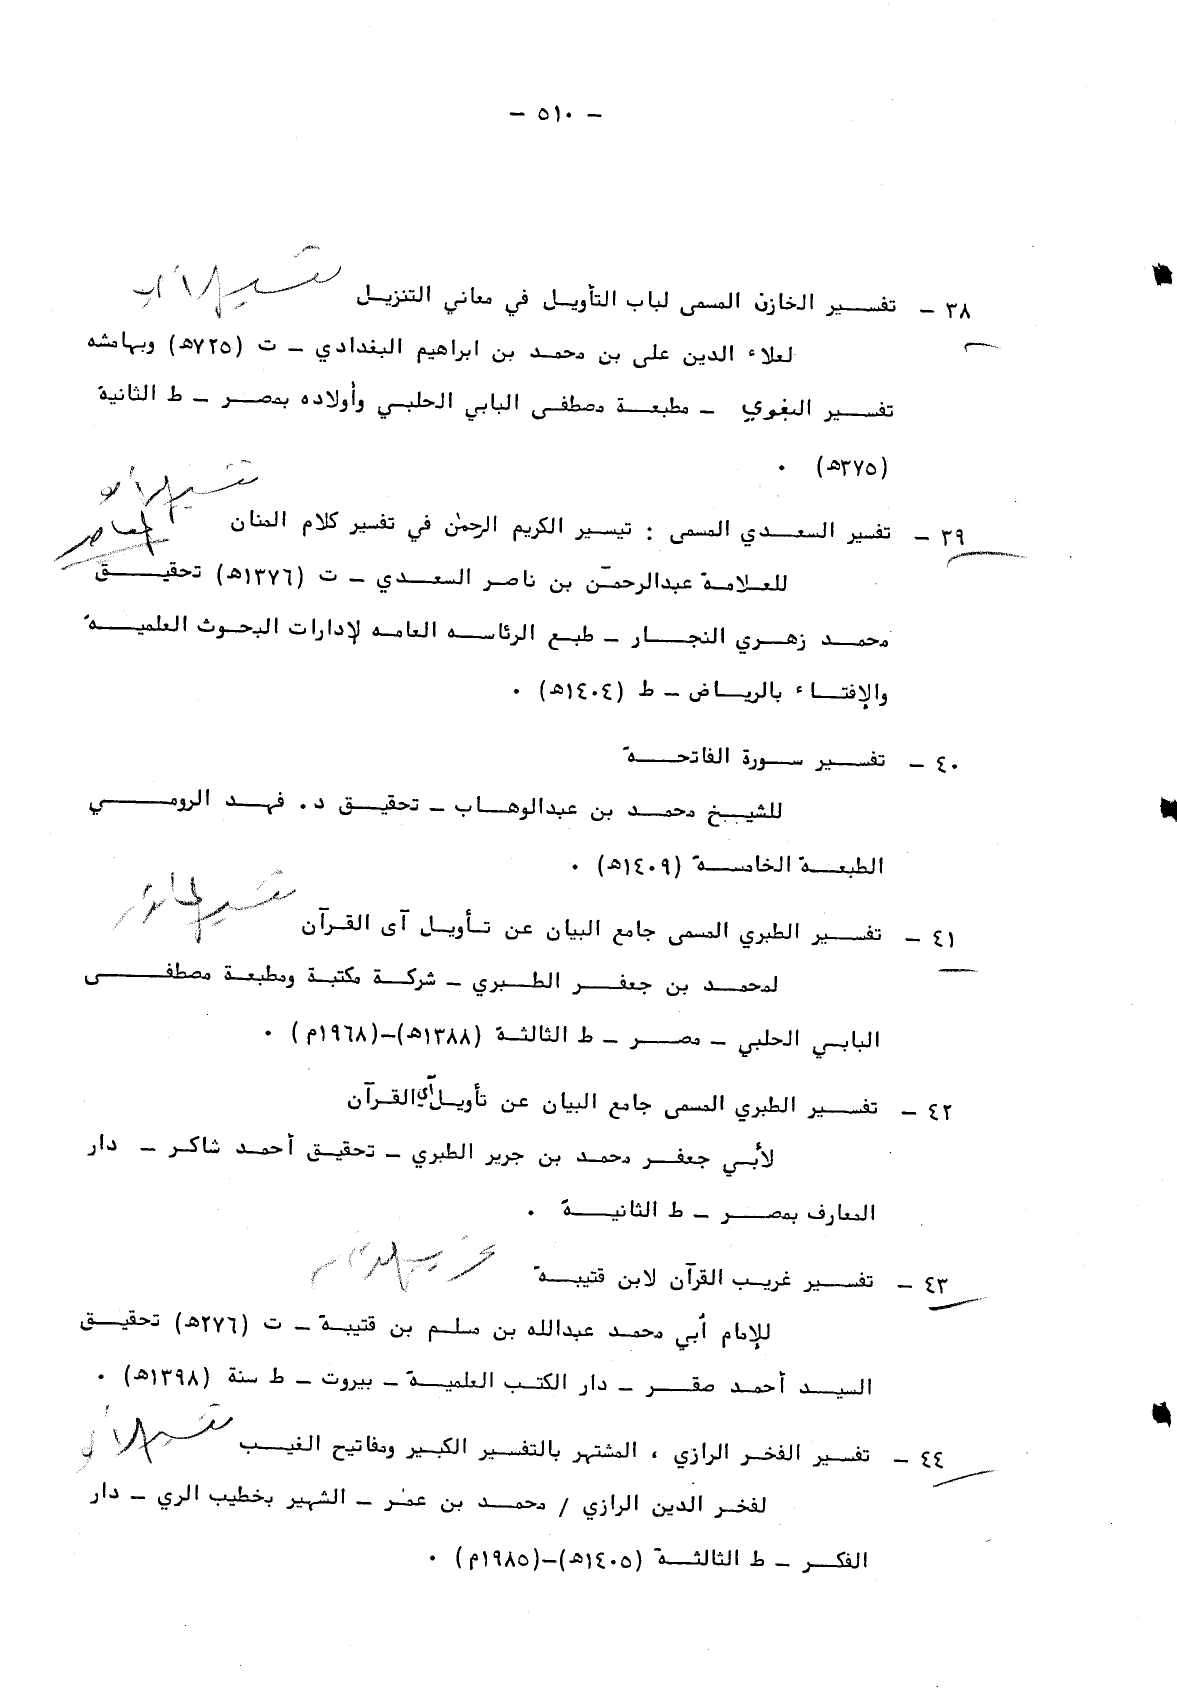 - ٥١٠ -
٣٨ - تفسير الخازن المسمى لباب التأويل في معاني التنزيل
لعلاء الدين على بن محمد بن ابراهيم البغدادي - ت (٧٢٥هـ) وبهامشه
تفسير البغوي - مطبعة مصطفى البابي الحلبي وأولاده بمصر - ط الثانية
(٣٧٥هـ) .
٣٩ - تفسير السعدي المسمى : تيسير الكريم الرحمن في تفسير كلام المنان
للعلامة عبدالرحمن بن ناصر السعدي - ت (١٣٧٦هـ) تحقيق
محمد زهري النجار - طبع الرئاسه العامه لإدارات البحوث العلمية
والإفتاء بالرياض - ط (١٤٠٤هـ) .
٤٠ - تفسير سورة الفاتحة
للشيخ محمد بن عبدالوهاب - تحقيق د. فهد الرومي
الطبعة الخامسة (١٤٠٩هـ) .
٤١ - تفسير الطبري المسمى جامع البيان عن تأويل آى القرآن
لمحمد بن جعفر الطبري - شركة مكتبة ومطبعة مصطفى
البابي الحلبي - مصر - ط الثالثة (١٣٨٨هـ)-(١٩٦٨م) .
٤٢ - تفسير الطبري المسمى جامع البيان عن تأويل آي القرآن
لأبي جعفر محمد بن جرير الطبري - تحقيق أحمد شاكر - دار
المعارف بمصر - ط الثانية .
٤٣ - تفسير غريب القرآن لابن قتيبة
للإمام أبي محمد عبدالله بن مسلم بن قتيبة - ت (٢٧٦هـ) تحقيق
السيد أحمد صقر - دار الكتب العلمية - بيروت - ط سنة (١٣٩٨هـ) .
٤٤ - تفسير الفخر الرازي ، المشتهر بالتفسير الكبير ومفاتيح الغيب
لفخر الدين الرازي / محمد بن عمر - الشهير بخطيب الري - دار
الفكر - ط الثالثة (١٤٠٥هـ)-(١٩٨٥م) .